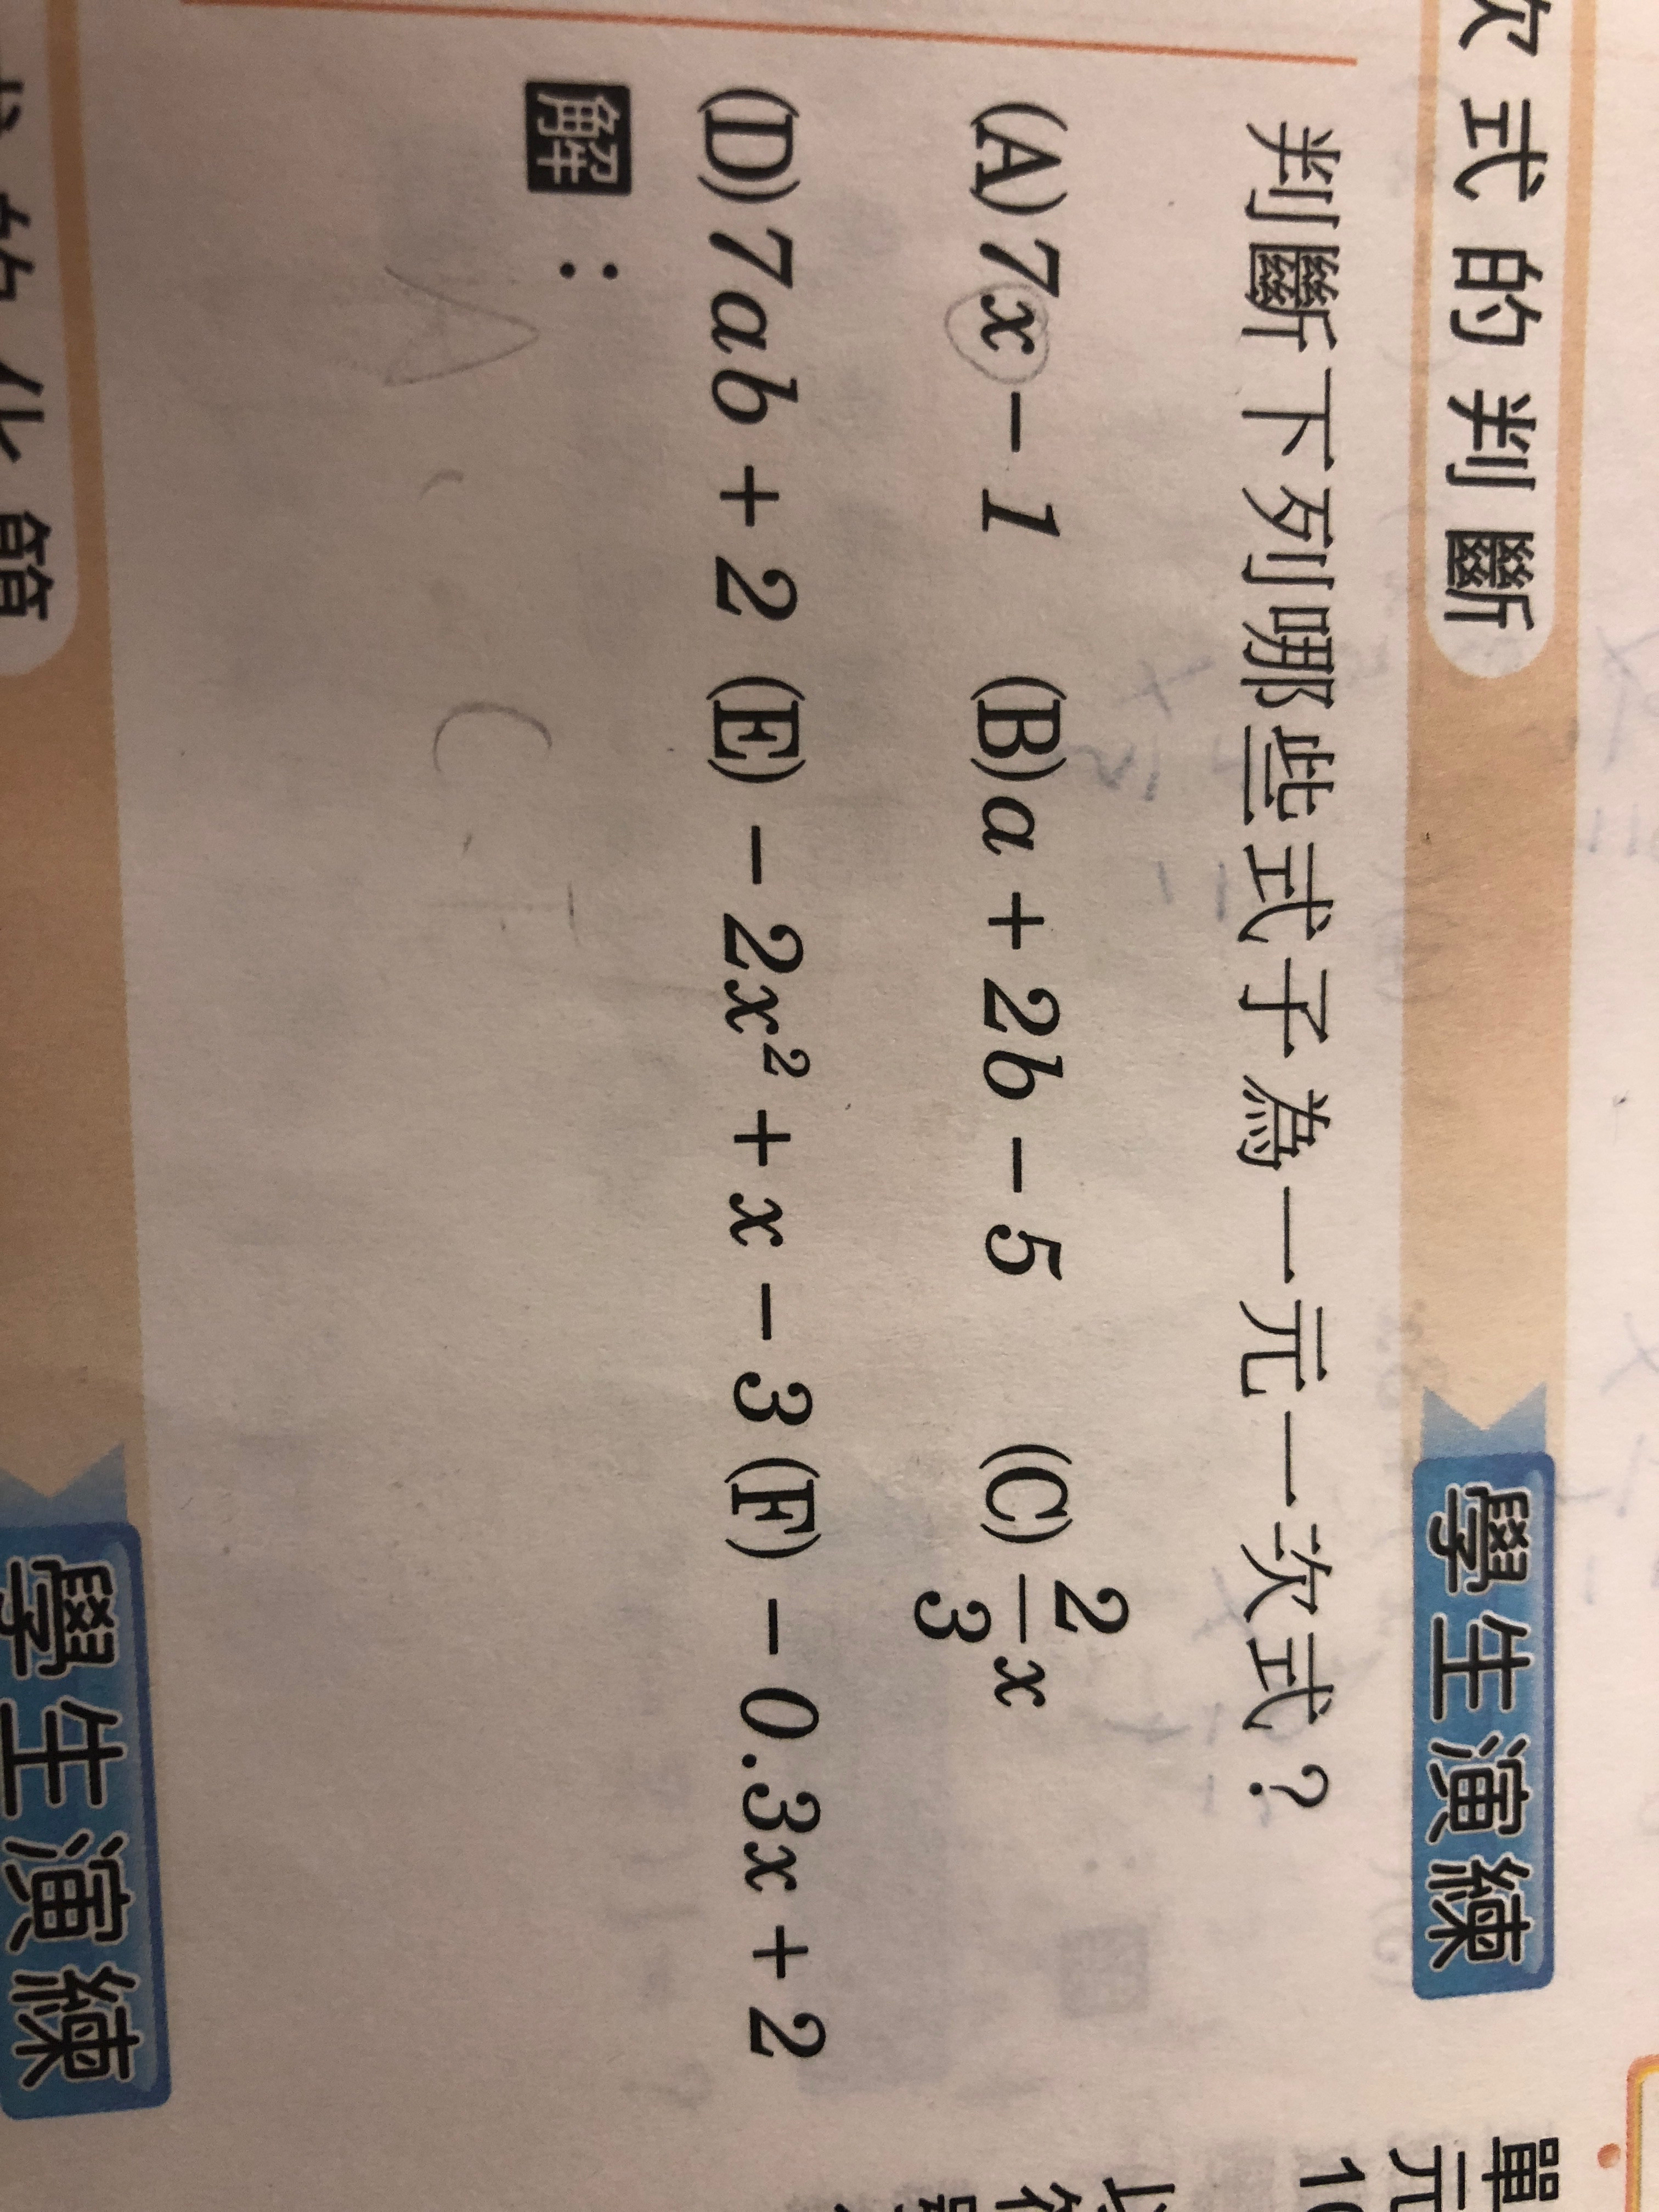 次式的判斷 學生演練
判斷下列哪些式子為一元一次式？
(A) 7x − 1 (B) a + 2b − 5 (C) 2/3 x
(D) 7ab + 2 (E) − 2x² + x − 3 (F) − 0.3x + 2
解：
A C F
的化簡 學生演練
單
元